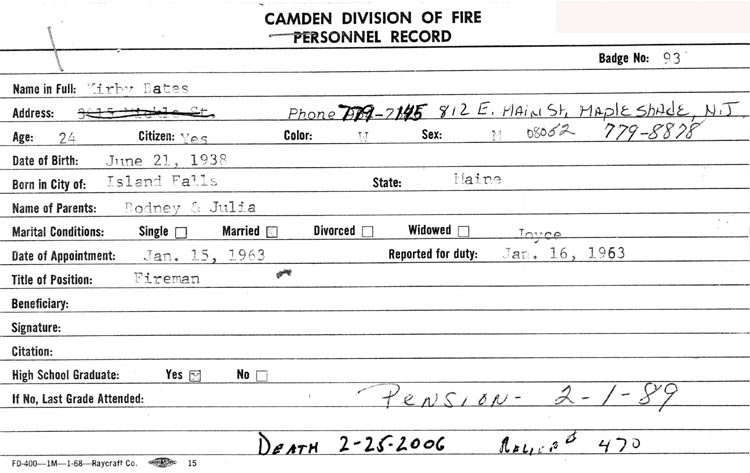 CAMDEN DIVISION OF FIRE
PERSONNEL RECORD
Badge No: 93
Name in Full: Kirby Bates
Address: Phone 779-7145 812 E. MAIN St, MAPLE SHADE, N.J.
Age: 24 Citizen: Yes Color: W Sex: M 08052 779-8878
Date of Birth: June 21, 1938
Born in City of: Island Falls State: Maine
Name of Parents: Rodney & Julia
Marital Conditions: Single Married Divorced Widowed Joyce
Date of Appointment: Jan. 15, 1963 Reported for duty: Jan. 16, 1963
Title of Position: Fireman
Beneficiary:
Signature:
Citation:
High School Graduate: Yes No
If No, Last Grade Attended: PENSION - 2-1-89
DEATH 2-25-2006 470
FD-400—1M—1-68—Raycraft Co. 15